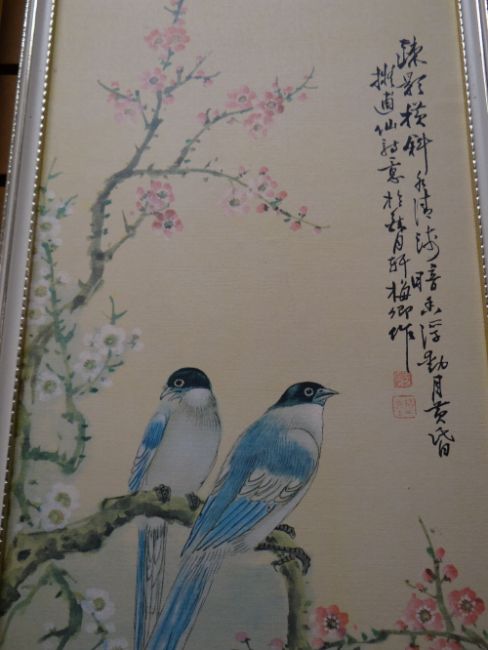 疎影横斜水清浅暗香浮動月黄昏
擬逋仙詩意於秋月軒梅卿作